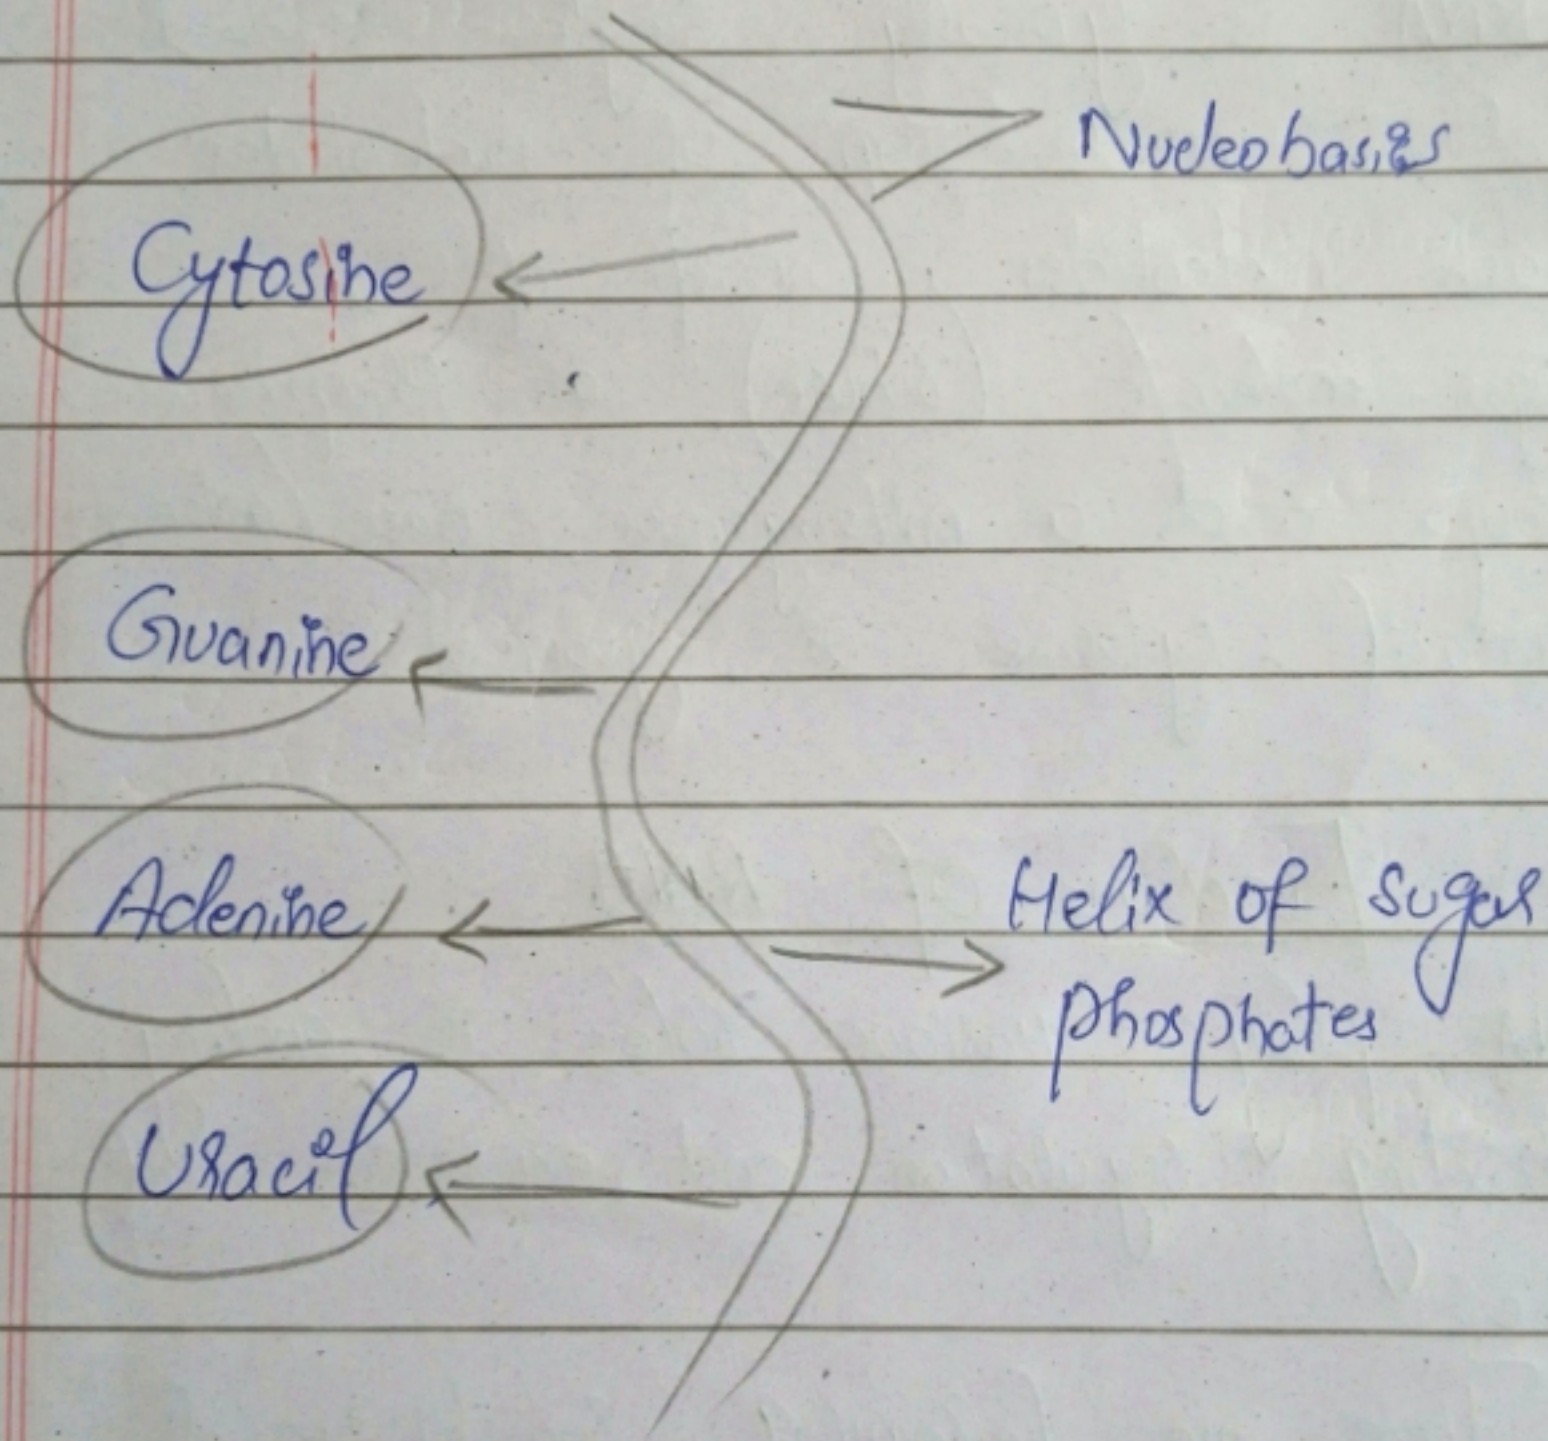 Nucleobasies
Cytosine
Guanine
Adenine
Helix of sugar
phosphates
Uracil